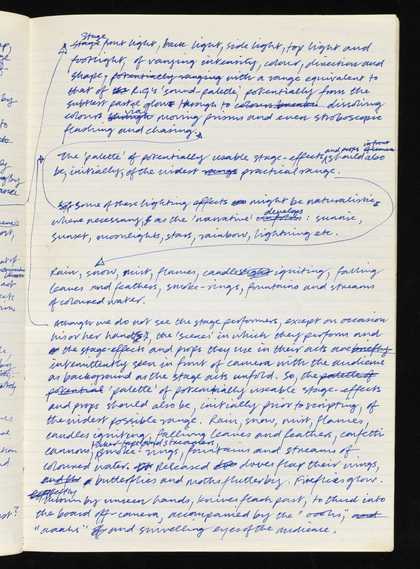 Stage
stage front light, back light, side light, top light and
footlight, of varying intensity, colour, direction and
shape, potentially ranging with a range equivalent to
that of the Ray's 'sound-palette', potentially from the
subtlest pastel glow through to colours dissolving
colours via moving prisms and even stroboscopic
flashing and chasing.
The 'palette' of potentially usable stage-effects and props should also
be, initially, of the widest range practical range.
Some of these lighting effects might be naturalistic
where necessary, & as the 'narrative' develops : sunrise,
sunset, moonlight, stars, rainbow, lightning etc.
Rain, snow, mist, flames, candles igniting, falling
leaves and feathers, smoke-rings, fountains and streams
of coloured water.
Although we do not see the stage performers, except on occasion
his or her hands, the 'scenes' in which they perform and
the stage-effects and props they use in their acts are briefly
intermittently seen in front of camera with the audience
as background as the stage acts unfold. So, the palette of
potential 'palette' of potentially useable stage-effects
and props should also be, initially prior to scripting, of
the widest possible range. Rain, snow, mist, flames,
candles igniting, falling leaves and feathers, confetti
cannons, smoke-rings, fountains and streams of
coloured water. Released doves flap their wings,
butterflies and moths flutter by. Fireflies glow.
Thrown by unseen hands, knives flash past, to thud into
the board off-camera, accompanied by the "ooohs", and
"aaahs" and swivelling eyes of the audience.